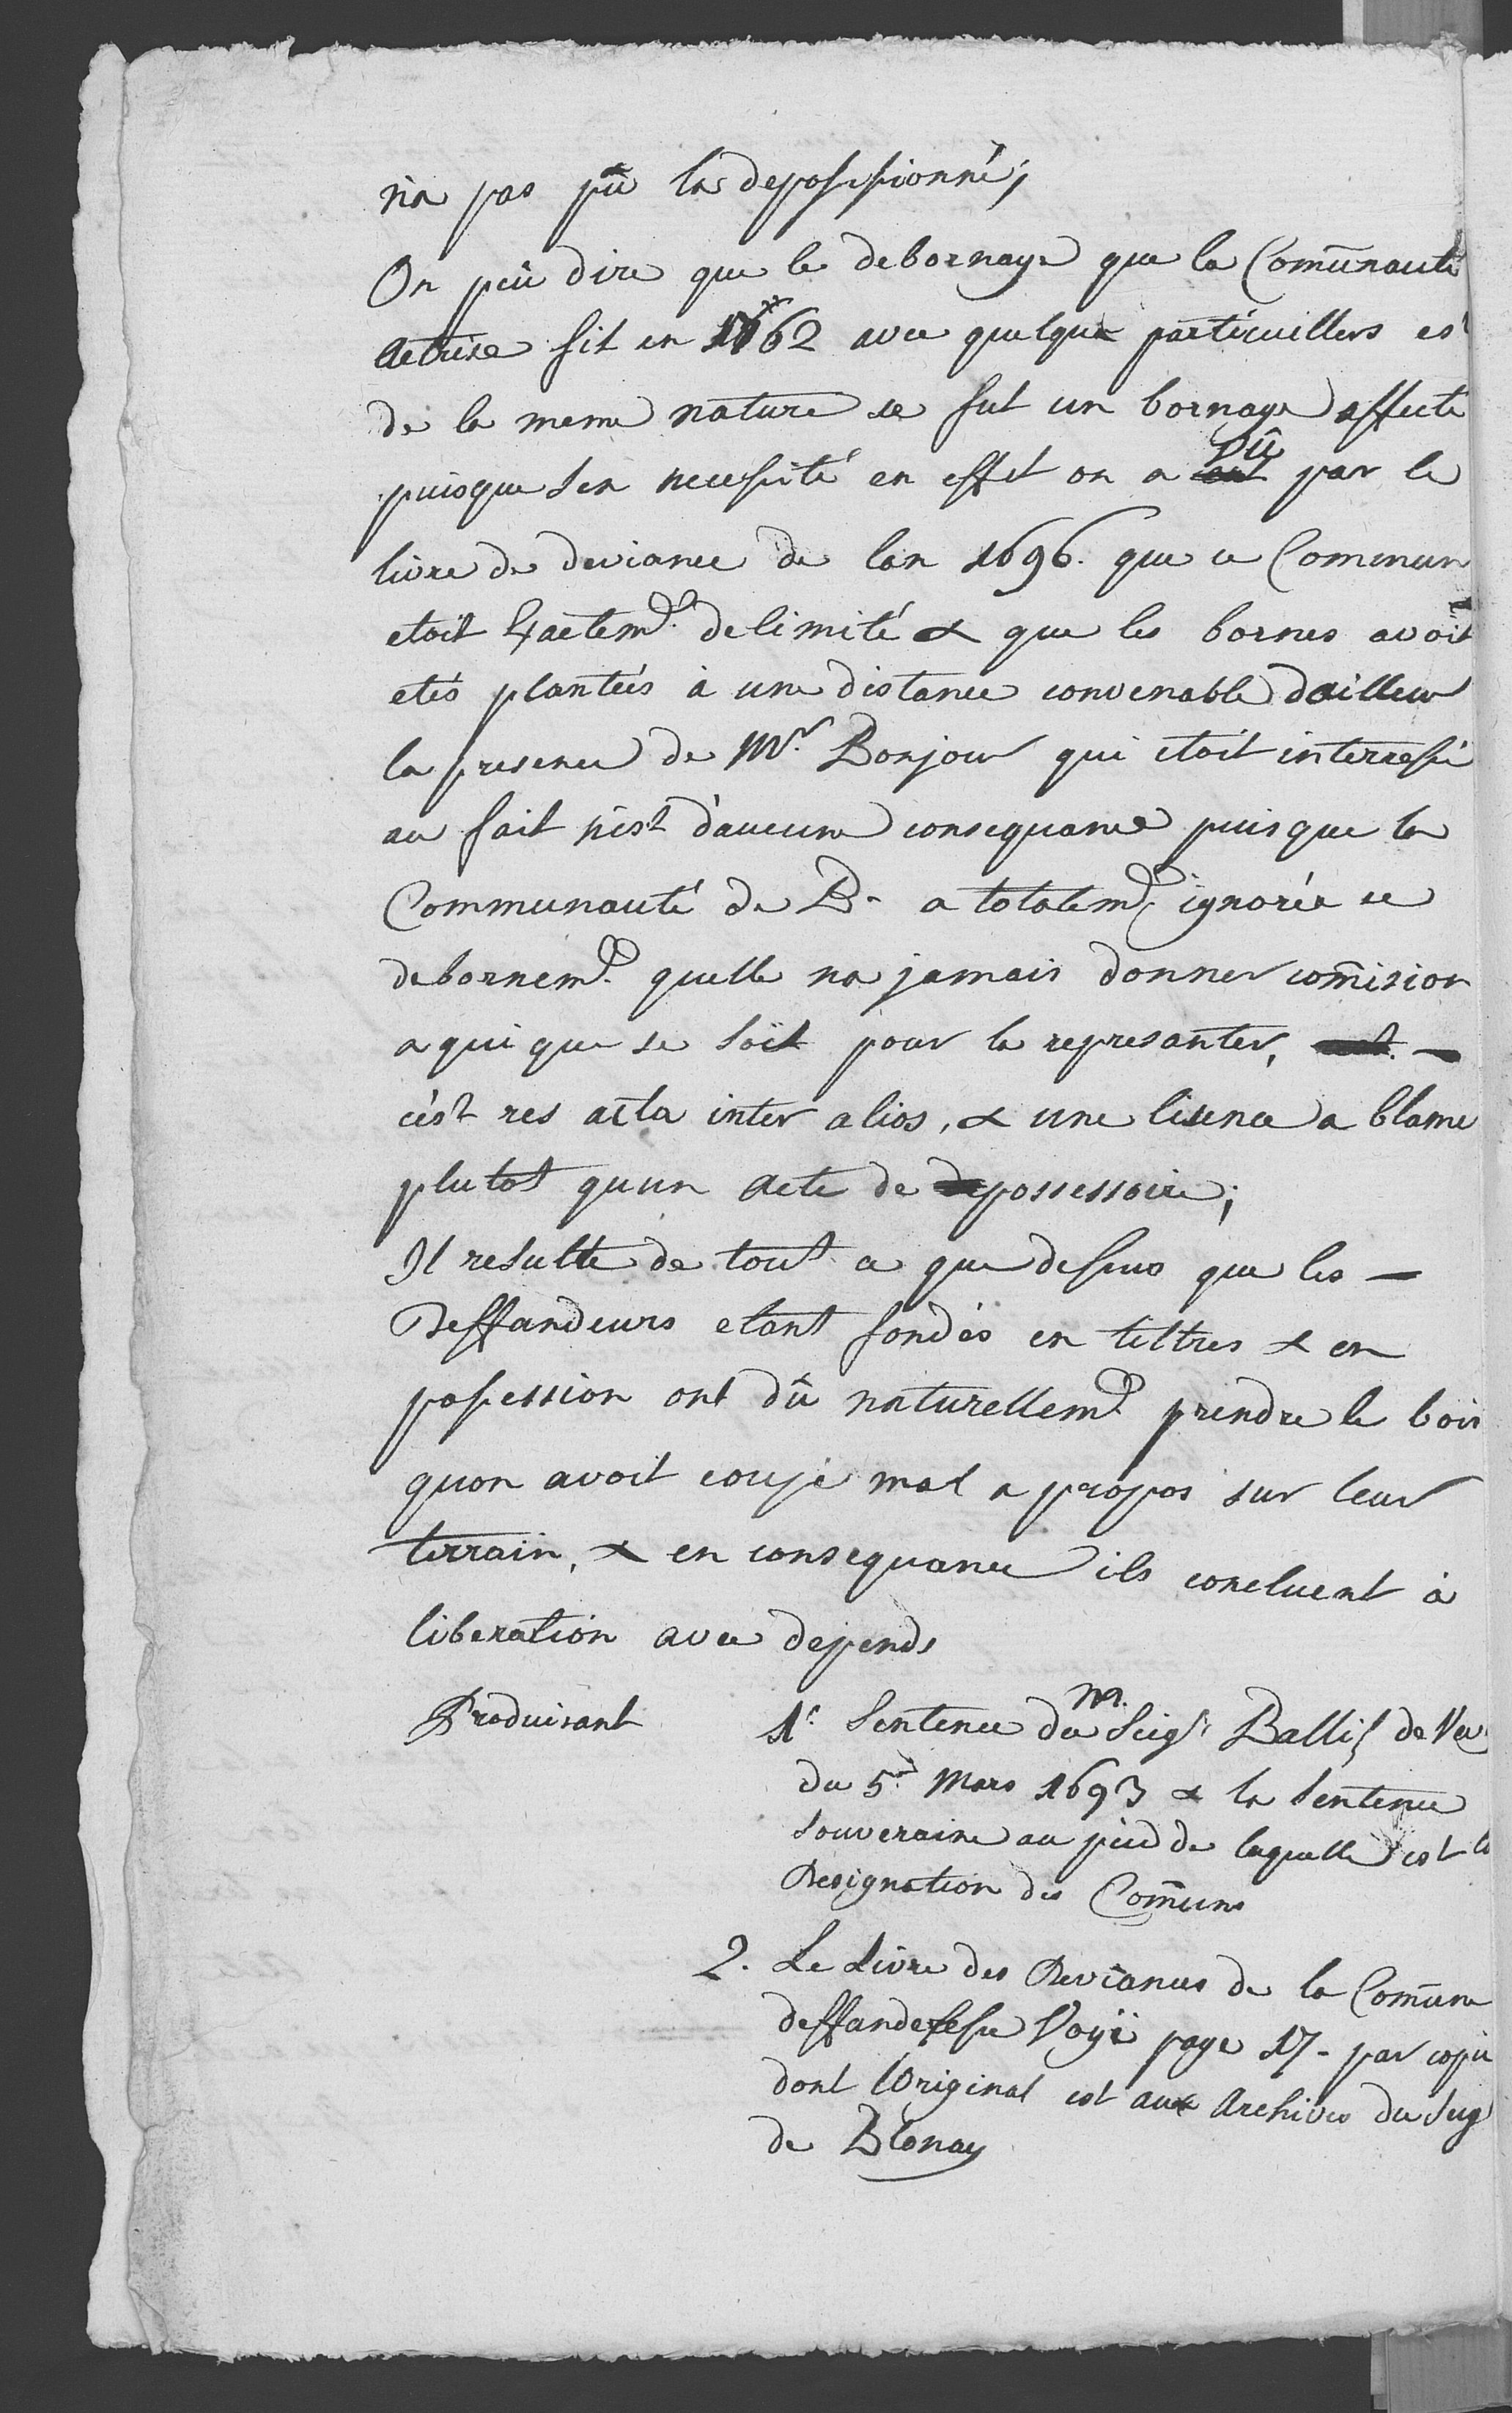 n'a pas pû la depossessionné;
On peû dire que le debornage que la Com̄unauté
Actrise fit en 1762 avec quelque particuillers est
de la meme nature se fut un bornage affecté
puisque sen necessité en effet on a vû par le
livre de deviance de lan 1696. que ce Commun
etoit Exactemt. delimité & que les bornes avoit
etés plantées à une distance convenable dailleur
la presence de Mr. Bonjour qui etoit interressé
au fait n'est d'aucune consequance puis que la
Communauté de B. a totalemt. ignorée ce
debornemt. quelle na jamais donner com̄ision
a qui que se soit pour la represanter, —
c'est res acta inter alios, & une lisence a blame
plutot quun acte de possessoire;
Il resulte de tout ce que dessus que les —
Deffandeurs etant fondés en tiltres & en
possession ont dû naturellemt. prendre le bois
quon avoit coupé mal a propos sur leur
terrain, & en consequance ils concluent à
liberation avec depends
Produisant 1°. Sentence du m. Seigr. Ballif de Vev
du 5e. Mars 1693 & la Sentence
Souveraine au pied de laquelle est la
Designation des Com̄uns
2. Le Livre des Deviances de la Com̄une
deffanderesse Voyé page 17 - par copie
dont lOriginal est aux Archives du Seigr
de Blonay